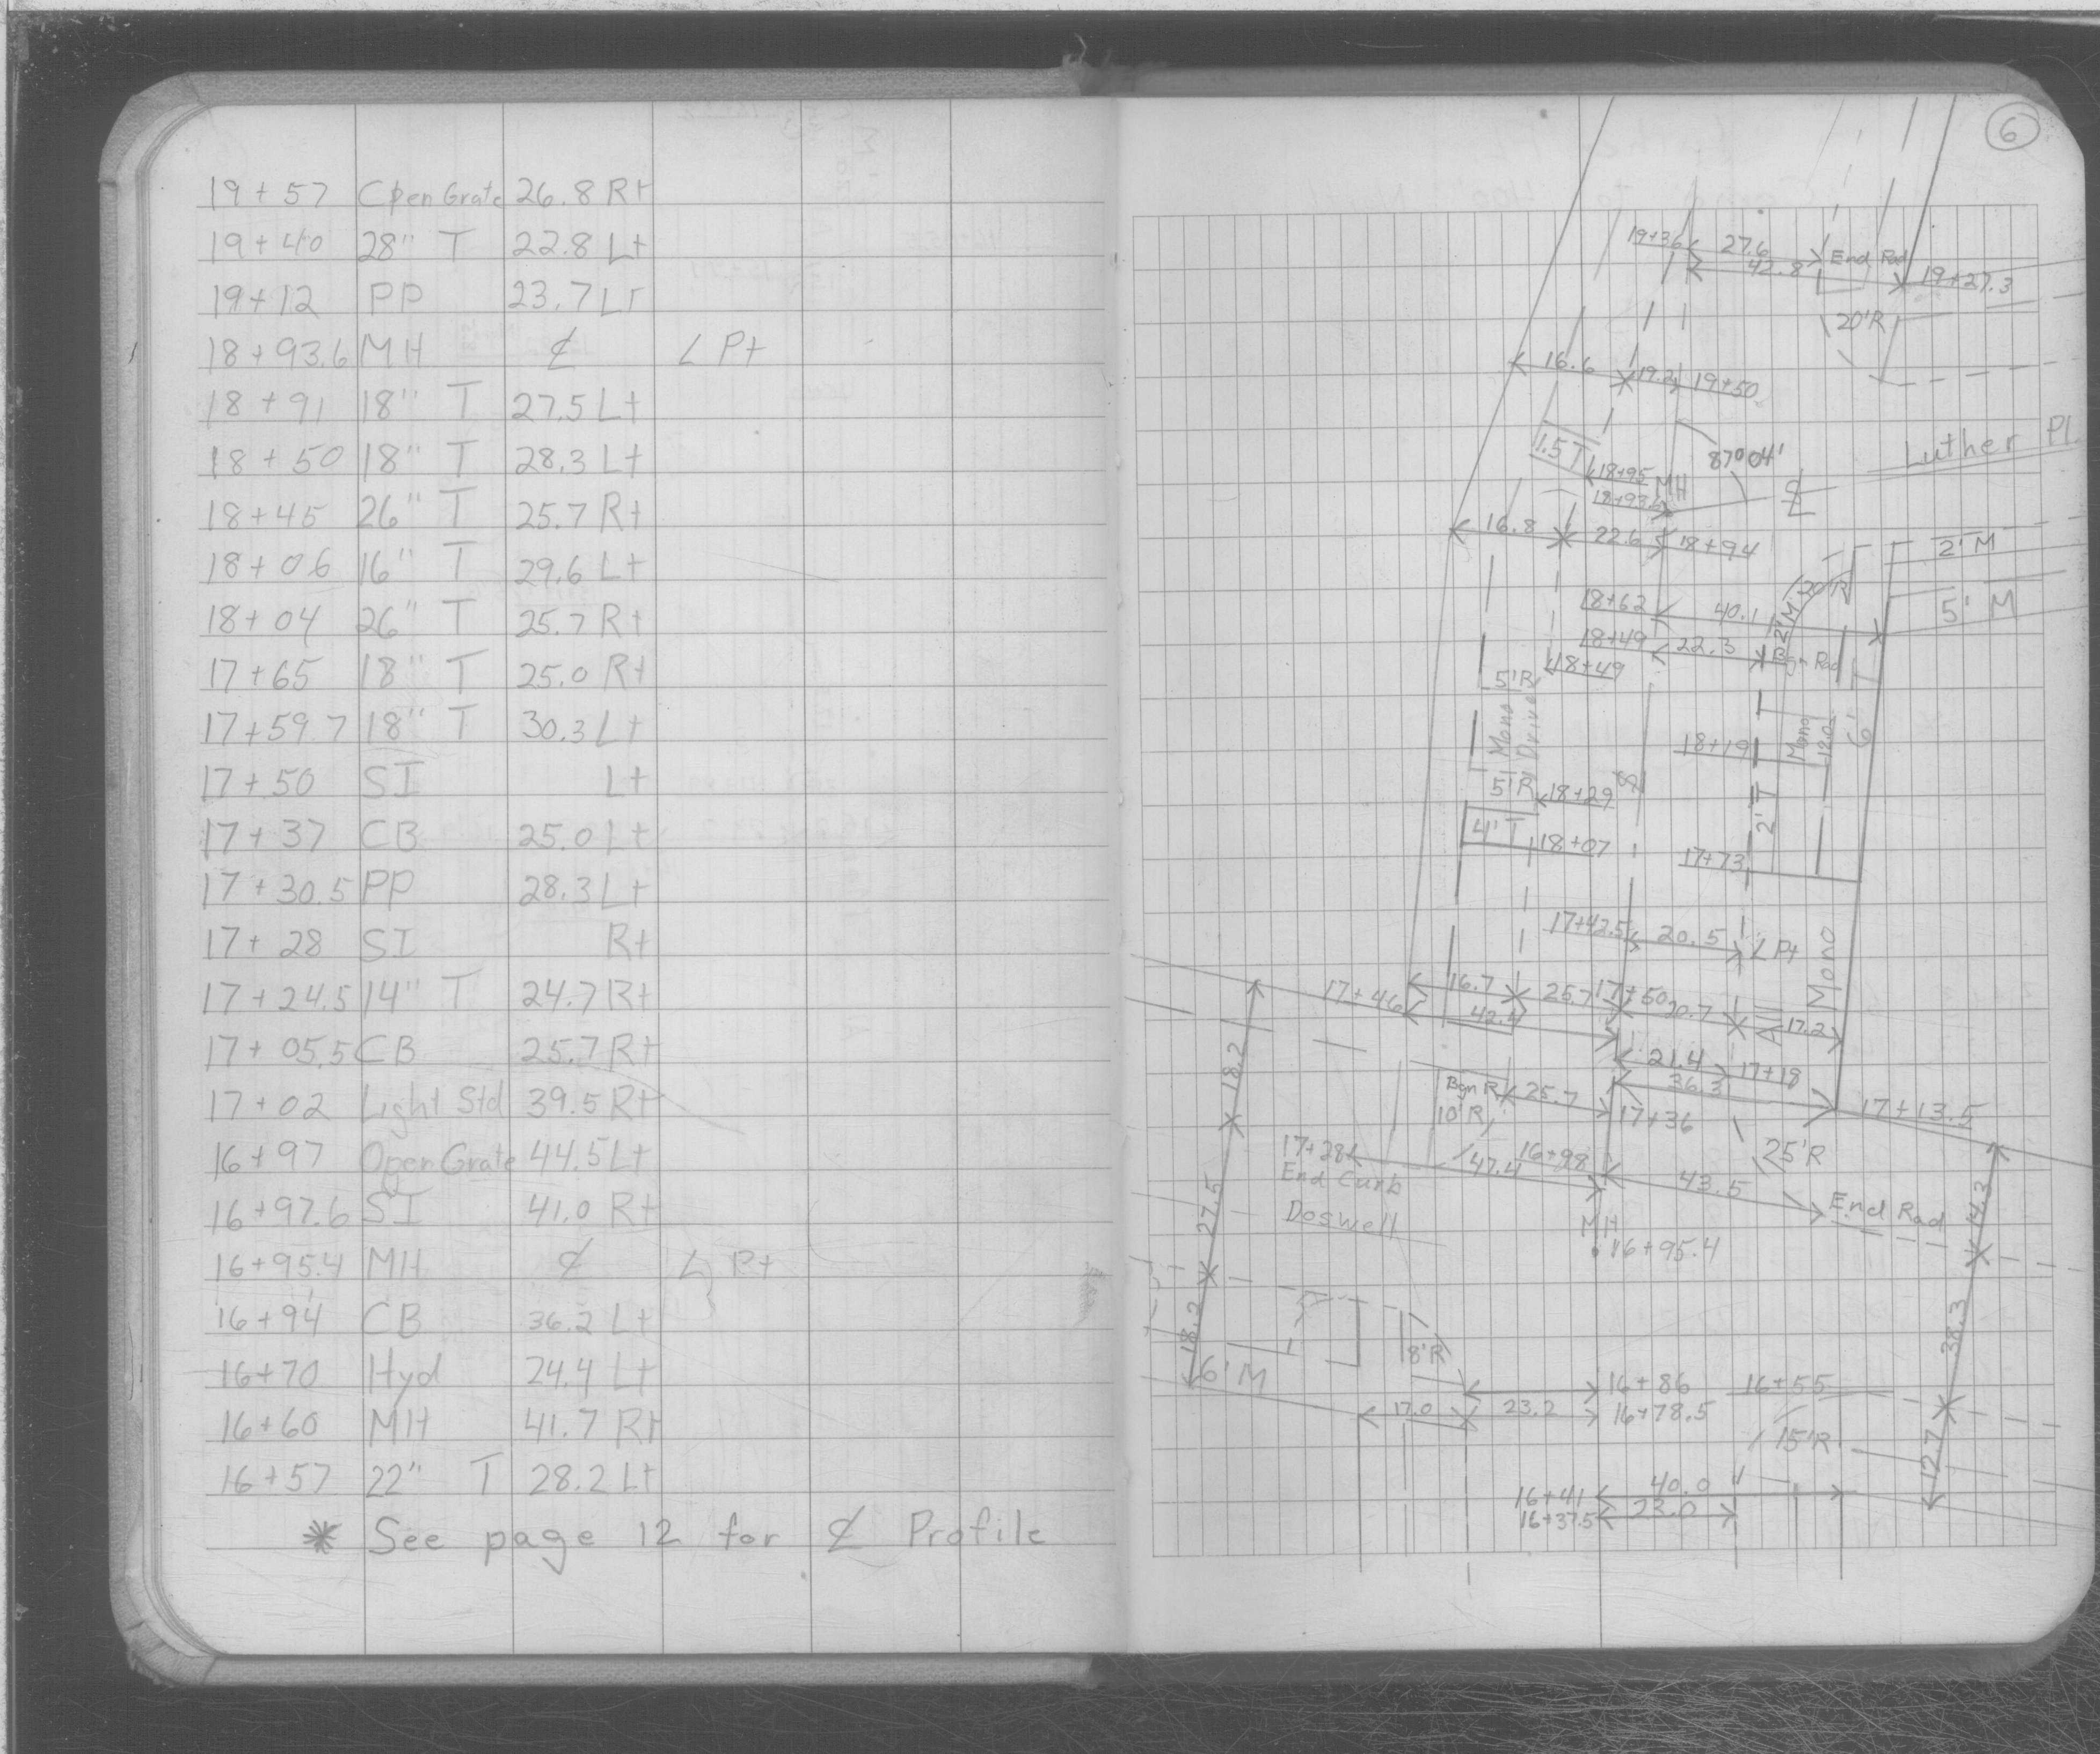 19+57 Open Grate 26.8 Rt
19+40 28" T 22.8 Lt
19+12 PP 23.7 Lt
18+93.6 MH ℄ ∠ Pt
18+91 18" T 27.5 Lt
18+50 18" T 28.3 Lt
18+45 26" T 25.7 Rt
18+06 16" T 29.6 Lt
18+04 26" T 25.7 Rt
17+65 18" T 25.0 Rt
17+59.7 18" T 30.3 Lt
17+50 SI Lt
17+37 CB 25.0 Lt
17+30.5 PP 28.3 Lt
17+28 SI Rt
17+24.5 14" T 24.7 Rt
17+05.5 CB 25.7 Rt
17+02 Light Std 39.5 Rt
16+97 Open Grate 44.5 Lt
16+97.6 SI 41.0 Rt
16+95.4 MH ℄ ∠ Pt
16+94 CB 36.2 Lt
16+70 Hyd 24.4 Lt
16+60 MH 41.7 Rt
16+57 22" T 28.2 Lt
* See page 12 for ℄ Profile
6
19+36 27.6 End Rad
42.8 19+27.3
20'R
16.6 19.2 19+50
87°04'
Luther Pl.
1.5 T 18+95 MH
18+93.6 ℄
16.8 22.6 18+94
2' M
20'R
18+62 40.1 5' M
2' M
18+49 22.3 Bgn Rad
18+49
5'R
Mono Drive
18+19 Mono 12.0 6' T
5'R 18+29
4' T 18+07
2' T
17+73
17+42.5 20.5 ∠ Pt
All Mono
16.7 25.7 17+50 20.7 17.2
17+46 42.4
18.2
21.4 17+18
36.3 17+13.5
Bgn R 25.7
10'R 17+36
25'R
17+28 47.4 16+98 43.5
End Curb End Rad
Doswell
27.5
14.3
MH
16+95.4
18.2
38.3
6' M
8'R
16+86 16+55
17.0 23.2 16+78.5
15'R
12.7
16+41 40.0
16+37.5 23.0